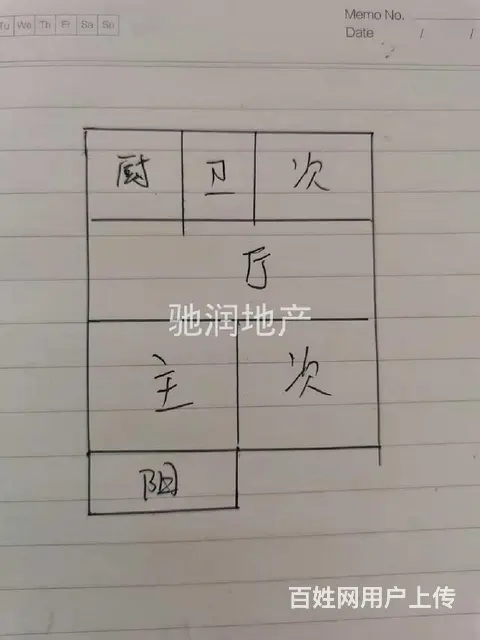 Memo No.
Tu We Th Fr Sa Su
Date / /
厨 卫 次
厅
驰润地产
主 次
阳
百姓网用户上传